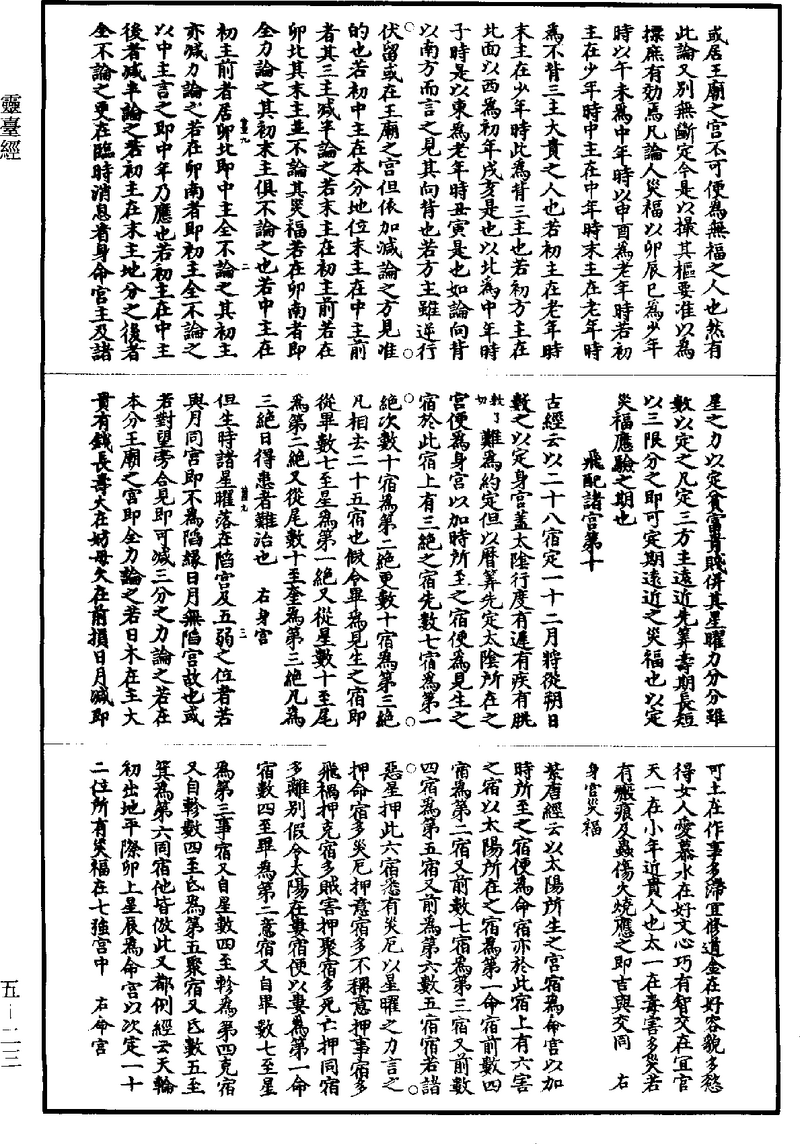 靈臺經
或居王廟之宮不可便為無福之人也然有
此論又別無斷定今是以撮其樞要准以為
標庶有効焉凡論人災福以卯辰巳為少年
時以午未為中年時以申酉為老年時若初
主在少年時中主在中年時末主在老年時
為不背三主大貴之人也若初主在老年時
末主在少年時此為背三主也若初方主在
北面以西為初年戌亥是也以北為中年時
子時是以東為老年時丑寅是也如論向背
以南方而言之見其向背也若方主雖逆行
伏留或在王廟之宮但依加減論之方見准
的也若初中主在本分地位末主在中主前
者其三主減半論之若末主在初主前若在
卯北其末主並不論其災福若在卯南者即
全力論之其初末主俱不論之也若中主在
初主前者居卯北即中主全不論之其初主
亦減力論之若在卯南者即初主全不論之
以中主言之即中年乃應也若初主在中主
後者減半論之若初主在末主地分之後者
全不論之更在臨時消息者身命宮主及諸
星之力以定貧富貴賤併其星曜力分分雖
數以定之凡定三方主遠近先算壽期長短
以三限分之即可定期遠近之災福也以定
災福應驗之期也
飛配諸宮第十
古經云以二十八宿定一十二月將從朔日
數之以定身宮蓋太陰行度有遲有疾有朓
難為約定但以曆筭先定太陰所在之
宮便為身宮以加時所至之宿便為見生之
宿於此宿上有三絕之宿先數七宿為第一
絕次數十宿為第二絕更數十宿為第三絕
凡相去二十五宿也假令畢為見生之宿即
從畢數七至星為第一絕又從星數十至尾
為第二絕又從尾數十至奎為第三絕凡為
三絕日得患者難治也　右身宮
但生時諸星曜落在陷宮及五弱之位者若
與月同宮即不為陷緣日月無陷宮故也或
若對望旁合見即可減三分之力論之若在
本分王廟之宮即全力論之若日木在主大
貴有錢長壽火在妨母欠在前損日月減即
可土在作事多滯宜修道金在好容貌多愁
得女人愛慕水在好文心巧有智交在宜官
天一在小年近貴人也太一在毒害多災若
有瘢痕及蟲傷火燒應之即吉與交同　右
身宮災福
紫唐經云以太陽所生之宮宿為命宮以加
時所至之宿便為命宿亦於此宿上有六害
之宿以太陽所在之宿為第一命宿前數四
宿為第二宿又前數七宿為第三宿又前數
四宿為第五宿又前為第六數五宿宿若諸
惡星押此六宿悉有災厄以星曜之力言之
押命宿多災厄押意宿多不稱意押事宿多
飛禍押克宿多賊害押聚宿多死亡押同宿
多離別假令太陽在婁宿便以婁為第一命
宿數四至畢為第二意宿又自畢數七至星
為第三事宿又自星數四至軫為第四克宿
又自軫數四至氐為第五聚宿又氐數五至
箕為第六同宿他皆倣此又都例經云天輪
初出地平際卯上星辰為命宮以次定一十
二位所有災福在七強宮中　右命宮
五—二三